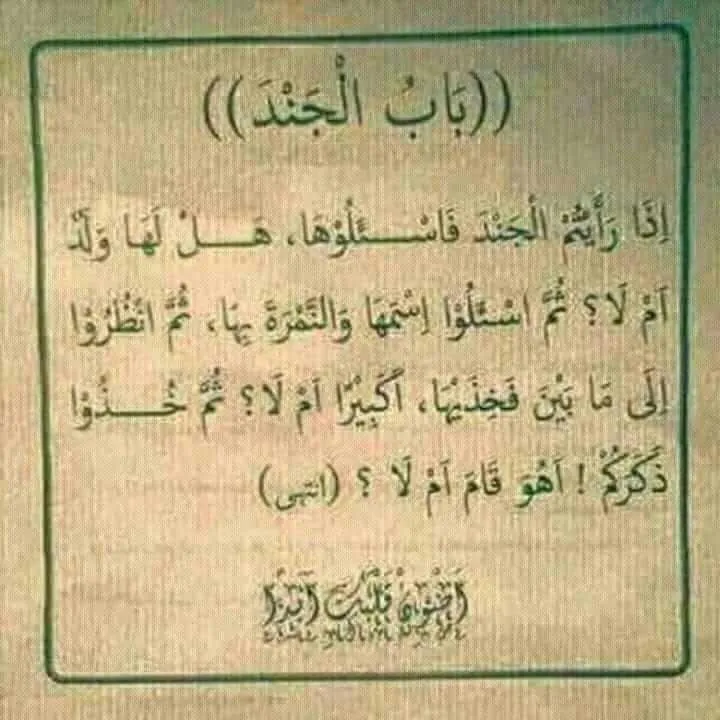 ((بَابُ الْجَنْدَ))
اِذَا رَأَيْتُمْ الْجَنْدَ فَاسْـــئَلُوْهَا، هَـــلْ لَهَا وَلَدْ
اَمْ لَا؟ ثُمَّ اسْئَلُوْا اِسْمَهَا وَالنَّمْرَةَ بِهَا، ثُمَّ انْظُرُوْا
اِلَى مَا بَيْنَ فَخِذَيْهَا، اَكَبِيْرًا اَمْ لَا؟ ثُمَّ خُـــذُوْا
ذَكَرَكُمْ! اَهُوَ قَامَ اَمْ لَا ؟ (انتهى)